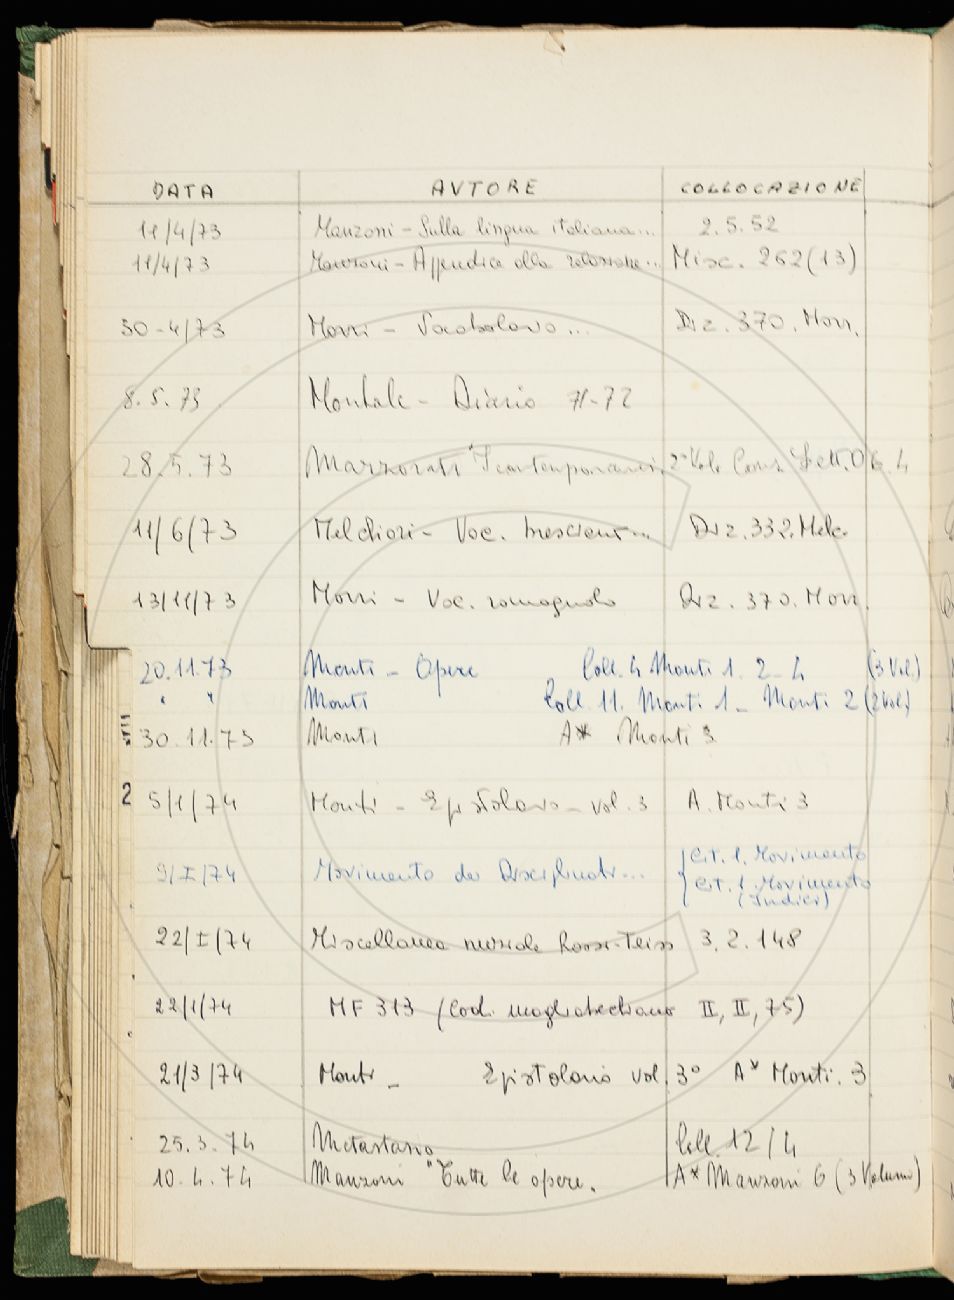 DATA AVTORE COLLOCAZIONE
11/4/73 Manzoni - Sulla lingua italiana... 2.5.52
11/4/73 Manzoni - Appendice alla relazione... Misc. 262(13)
30-4/73 Morri - Vocabolario... Diz. 370. Morr.
8.5.73 Montale - Diario 71-72
28.5.73 Marzorati "I contemporanei 2° Vol. Cons. Lett. 4
11/6/73 Melchiori - Voc. bresciano... Diz. 332. Melc.
13/11/73 Morri - Voc. romagnolo Diz. 370. Morr.
20.11.73 Monti - Opere Coll. 4 Monti 1. 2- 4 (3 Vol.)
" " Monti Coll. 11. Monti 1 - Monti 2 (2 Vol.)
30.11.73 Monti A* Monti 3
2
5/1/74 Monti - Epistolario - vol. 3 A. Monti 3
9/I/74 Movimento dei Disciplinati... Cit. 1. Movimento
Cit. 1 Movimento
(Indici)
22/I/74 Miscellanea nuziale Rossi-Teiss 3. 2. 148
22/1/74 MF 313 (Cod. magliabechiano II, II, 75)
21/3/74 Monti - Epistolario vol. 3° A* Monti. 3
25.3.74 Metastasio Coll. 12/4
10.4.74 Manzoni "Tutte le opere. A* Manzoni 6 (3 Volumi)